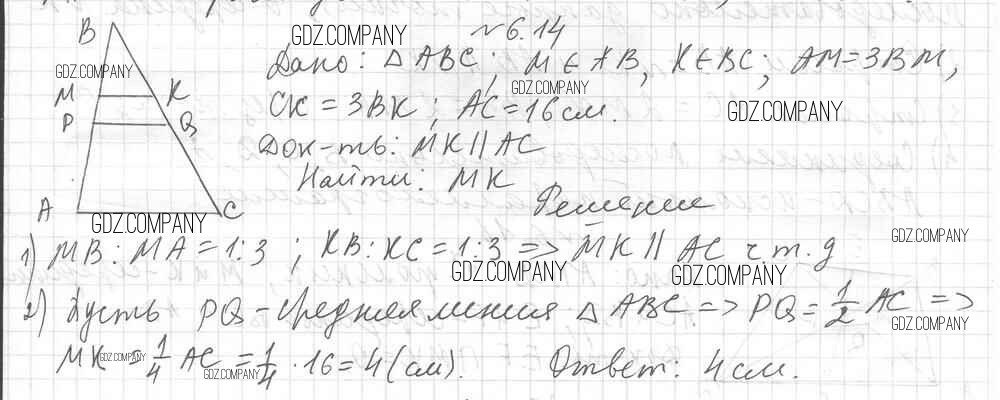 № 6.14
B
GDZ.COMPANY
Дано: △ ABC; M ∈ AB, K ∈ BC; AM = 3BM,
GDZ.COMPANY
GDZ.COMPANY
M K
CK = 3BK; AC = 16 см.
GDZ.COMPANY
P Q
Док-ть: MK || AC
Найти: MK
A C
GDZ.COMPANY
Решение
GDZ.COMPANY
1) MB : MA = 1:3 ; KB : KC = 1:3 => MK || AC ч.т.д
GDZ.COMPANY
GDZ.COMPANY
2) Пусть PQ - средняя линия △ ABC => PQ = 1/2 AC =>
GDZ.COMPANY
MK = 1/4 AC = 1/4 · 16 = 4 (см). Ответ: 4 см.
GDZ.COMPANY
GDZ.COMPANY